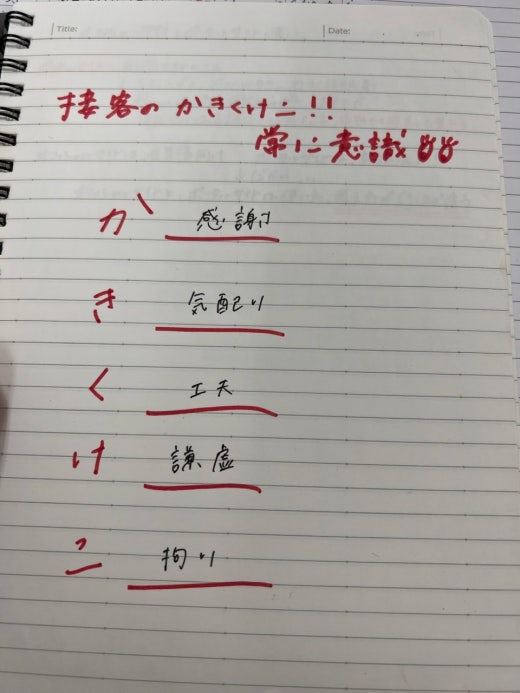 Title:
Date:
接客のかきくけこ!!
常に意識
か 感謝
き 気配り
く 工夫
け 謙虚
こ 拘り